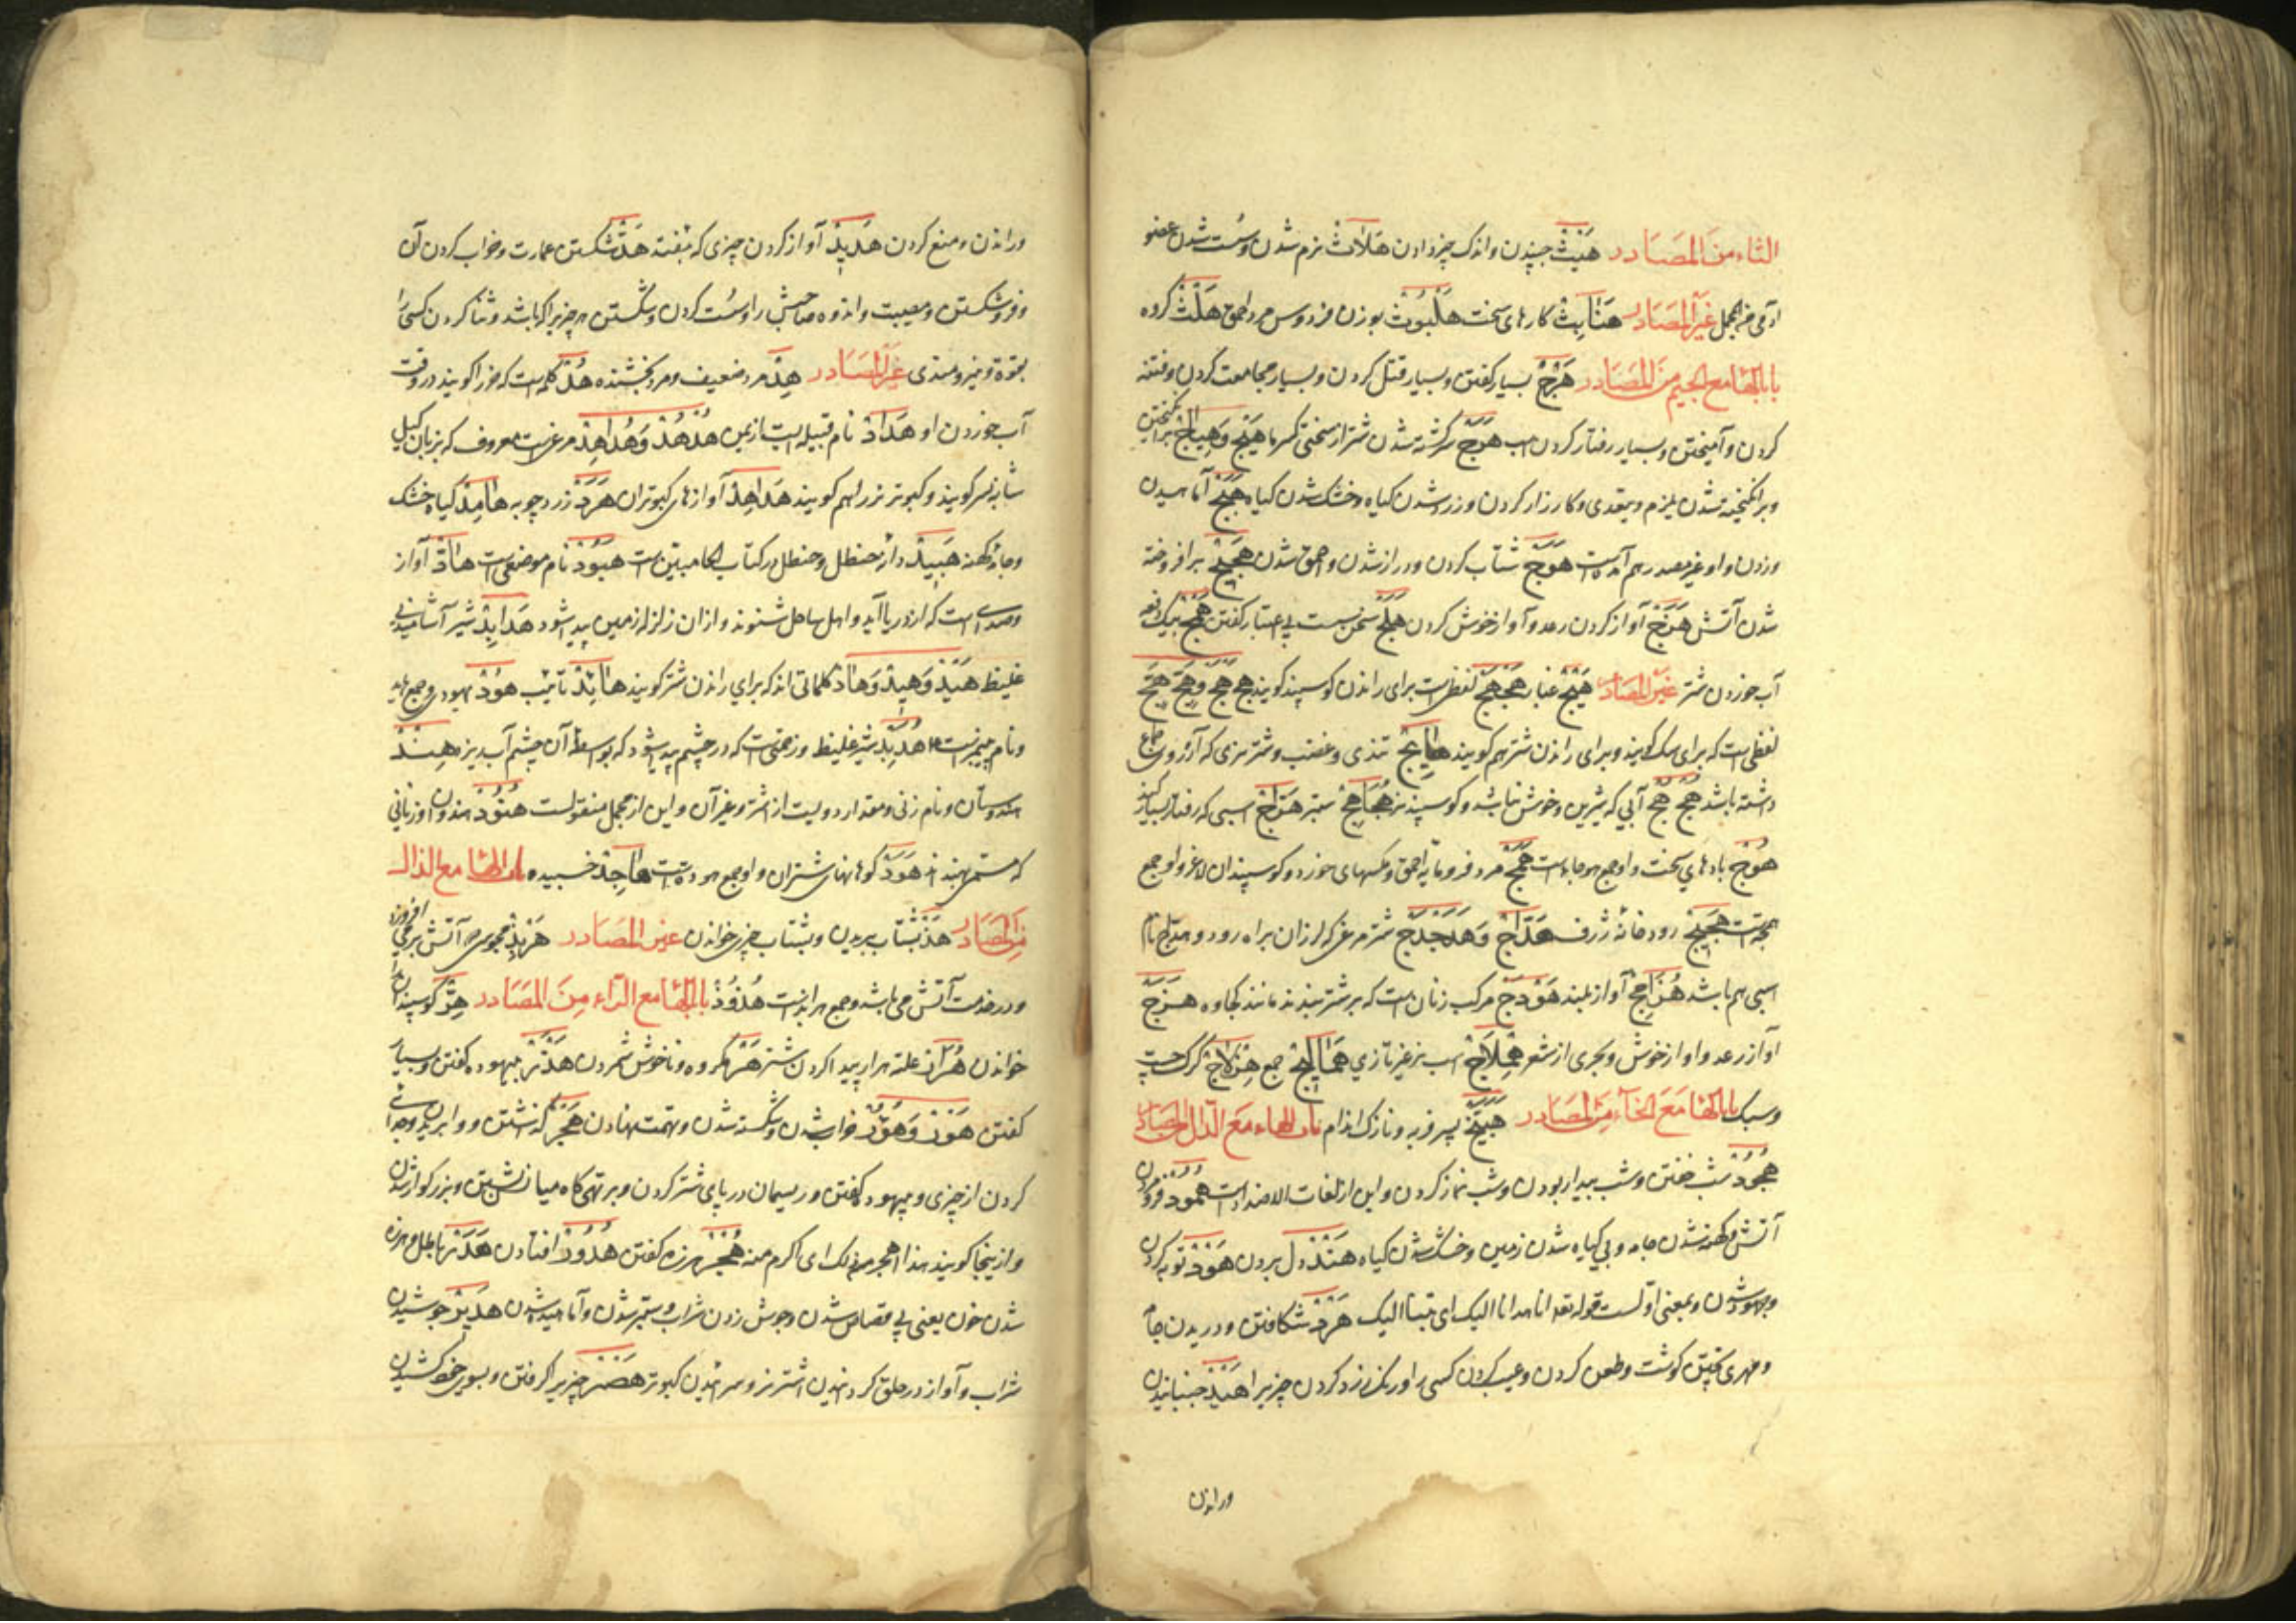 الثاء من المصادر هَیْث جنبیدن و اندک چیز دادن هَلاث نرم شدن و سست شدن عضو
غیر المصادر هَنَابِث کارهای سخت هَلْبَوْث بوزن فردوس مرد احمق هَلْث کروه
باب الهاء مع الجیم من المصادر هَرْج بسیار کفتن و بسیار قتل کردن و بسیار مجامعت کردن و فتنه
کردن و آمیختن و بسیار رفتار کردن اسب هَرَج سرکشته شدن شتر از سختی کرما هَیْج وَهِیَاج برانکیختن
و برانکیخته شدن یلزم و یتعدی و کارزار کردن و زرد شدن کیاه و خشک شدن کیاه هَبَج آماسیدن
و زدن و او غیر مصدر هم آمده است هَوَج شتاب کردن و دراز شدن و احمق شدن هَجِیج برافروخته
شدن آتش هَزَج آواز کردن رعد و آواز خوش کردن هَلْج سخن سست بی اعتبار کفتن
آب خوردن شتر غیر المصادر هَیْج غبار هَجْهَجْ لفظی است برای راندن کوسپند کویند
لفظی است که برای سک کویند و برای راندن شتر هم کویند هَائِج تندی و غضب و شتر نری که آرزوی جماع
داشته باشد آبی که شیرین و خوش نباشد و کوسپند نر هَرَّاج اسبی که رفتار بسیار کند
هُوْج بادهای سخت و او جمع هوجاء است هَمَج مرد فرومایه احمق و مکسهای خورد و کوسپندان لاغر و او جمع
همجة است هَجِیج رودخانه ژرف هَدَّاج وَهَدَجْدَج شتر مرغ که لرزان براه رود و هداج نام
اسبی هم باشد هُزَامِج آواز بلند هَوْدَج مرکب زنان است که بر شتر بندند مانند کجاوه هَزَج
آواز رعد و آواز خوش و بحری از شعر هِمْلَاج اسب نر غیر تازی هَمَالِیج جمع هِزْلَاج کرک چست
و سبک باب الهاء مع الخاء من المصادر هَبَیَّخ پسر فربه و نازک اندام باب الهاء مع الدال من المصادر
هُجُود شب خفتن و شب بیدار بودن و شب نماز کردن و این از لغات الاضداد است هُمُود فرو مردن
آتش و کهنه شدن جامه و بی کیاه شدن زمین و خشک شدن کیاه هَنْد دل بردن هَوْد توبه کردن
و جهود شدن و بمعنی اولست قوله تعه انا هدنا الیک ای تبنا الیک هَرْد شکافتن و دریدن جامه
و مهری پختن کوشت و طعن کردن و عیب کردن کسی را و رنک زرد کردن چیزیرا هَیْد جنبانیدن
و راندن
و راندن و منع کردن هَدِید آواز کردن چیزی که بیفتد هَدّ شکستن عمارت و خراب کردن آن
و فروشکستن و مصیبت و اندوه صاحبش را و سست کردن و شکستن هر چیزیرا که باشد و ثنا کردن کسی را
بقوة و نیرومندی غیر المصادر هِدّ مرد ضعیف و مرد بخشنده هُدْ کلمه است که خر را کویند در وقت
آب خوردن او هَدَاد نام قبیله ایست از یمن هُدْهُد وَهُدَاهِد مرغیست معروف که بزبان کیل
شانه سر کویند و کبوتر نر را هم کویند هَدَاهِد آوازهای کبوتران هَرْد زرد چوبه هَامِد کیاه خشک
و جامه کهنه هَبِید دانهٔ حنظل و حنظل در کتاب الحا مبین است هَبُّود نام موضعی است هَادّ آواز
و صدایی است که از دریا آید و اهل ساحل شنوند و از آن زلزله زمین پیدا شود هُدَابِد شیر آشامیدنی
غلیظ هَیْد وَهِید وَهَاد کلماتی اند که برای راندن شتر کویند هَائِد تایب هُوْد یهودی و جمع هاید
و نام پیغمبریست هُدَبِد شیر غلیظ و زحمتی است که در چشم پیدا شود که بواسطه آن چشم آب ریزد هِنْد
هندوستان و نام زنی و مقدار دویست از اشتر و غیر آن و این از مجمل منقولست هُنُود هندوان و زنانی
که مسمی بهند اند هَوَد کوهانهای شتران و او جمع هودة است هَاجِد خسبیده باب الهاء مع الذال
من المصادر هَذّ بشتاب بریدن و بشتاب چیزی خواندن غیر المصادر هِرْبِذ مجوسی که آتش برمی افروزد
و در خدمت آتش می باشد و جمع هرابذه است باب الهاء مع الراء من المصادر هِرّ کوسپند را
خواندن هُرَار علة هرار پیدا کردن شتر هَرّ مکروه و ناخوش شمردن هَذْر بیهوده کفتن و بسیار
کفتن هَوْر وَهُؤُور خراب شدن و شکسته شدن و تهمت نهادن هَجْر کذشتن و وابریدن و جدایی
کردن از چیزی و بیهوده کفتن و ریسمان در پای شتر کردن و بر تهی کاه میانش بستن و بزرکوار شدن
و از اینجا کویند هذا اهجر من ذلک ای اکرم منه هُجْر هرزه کفتن هُدُور افتادن هَدَر باطل و هرزه
شدن خون یعنی بی قصاص شدن و جوش زدن شراب و ستبر شدن و آماسیده شدن هَدِیر جوشیدن
شراب و آواز در حلق کردانیدن اشتر نر و سراییدن کبوتر هَصْر چیزیرا کرفتن و بسوی خود کشیدن